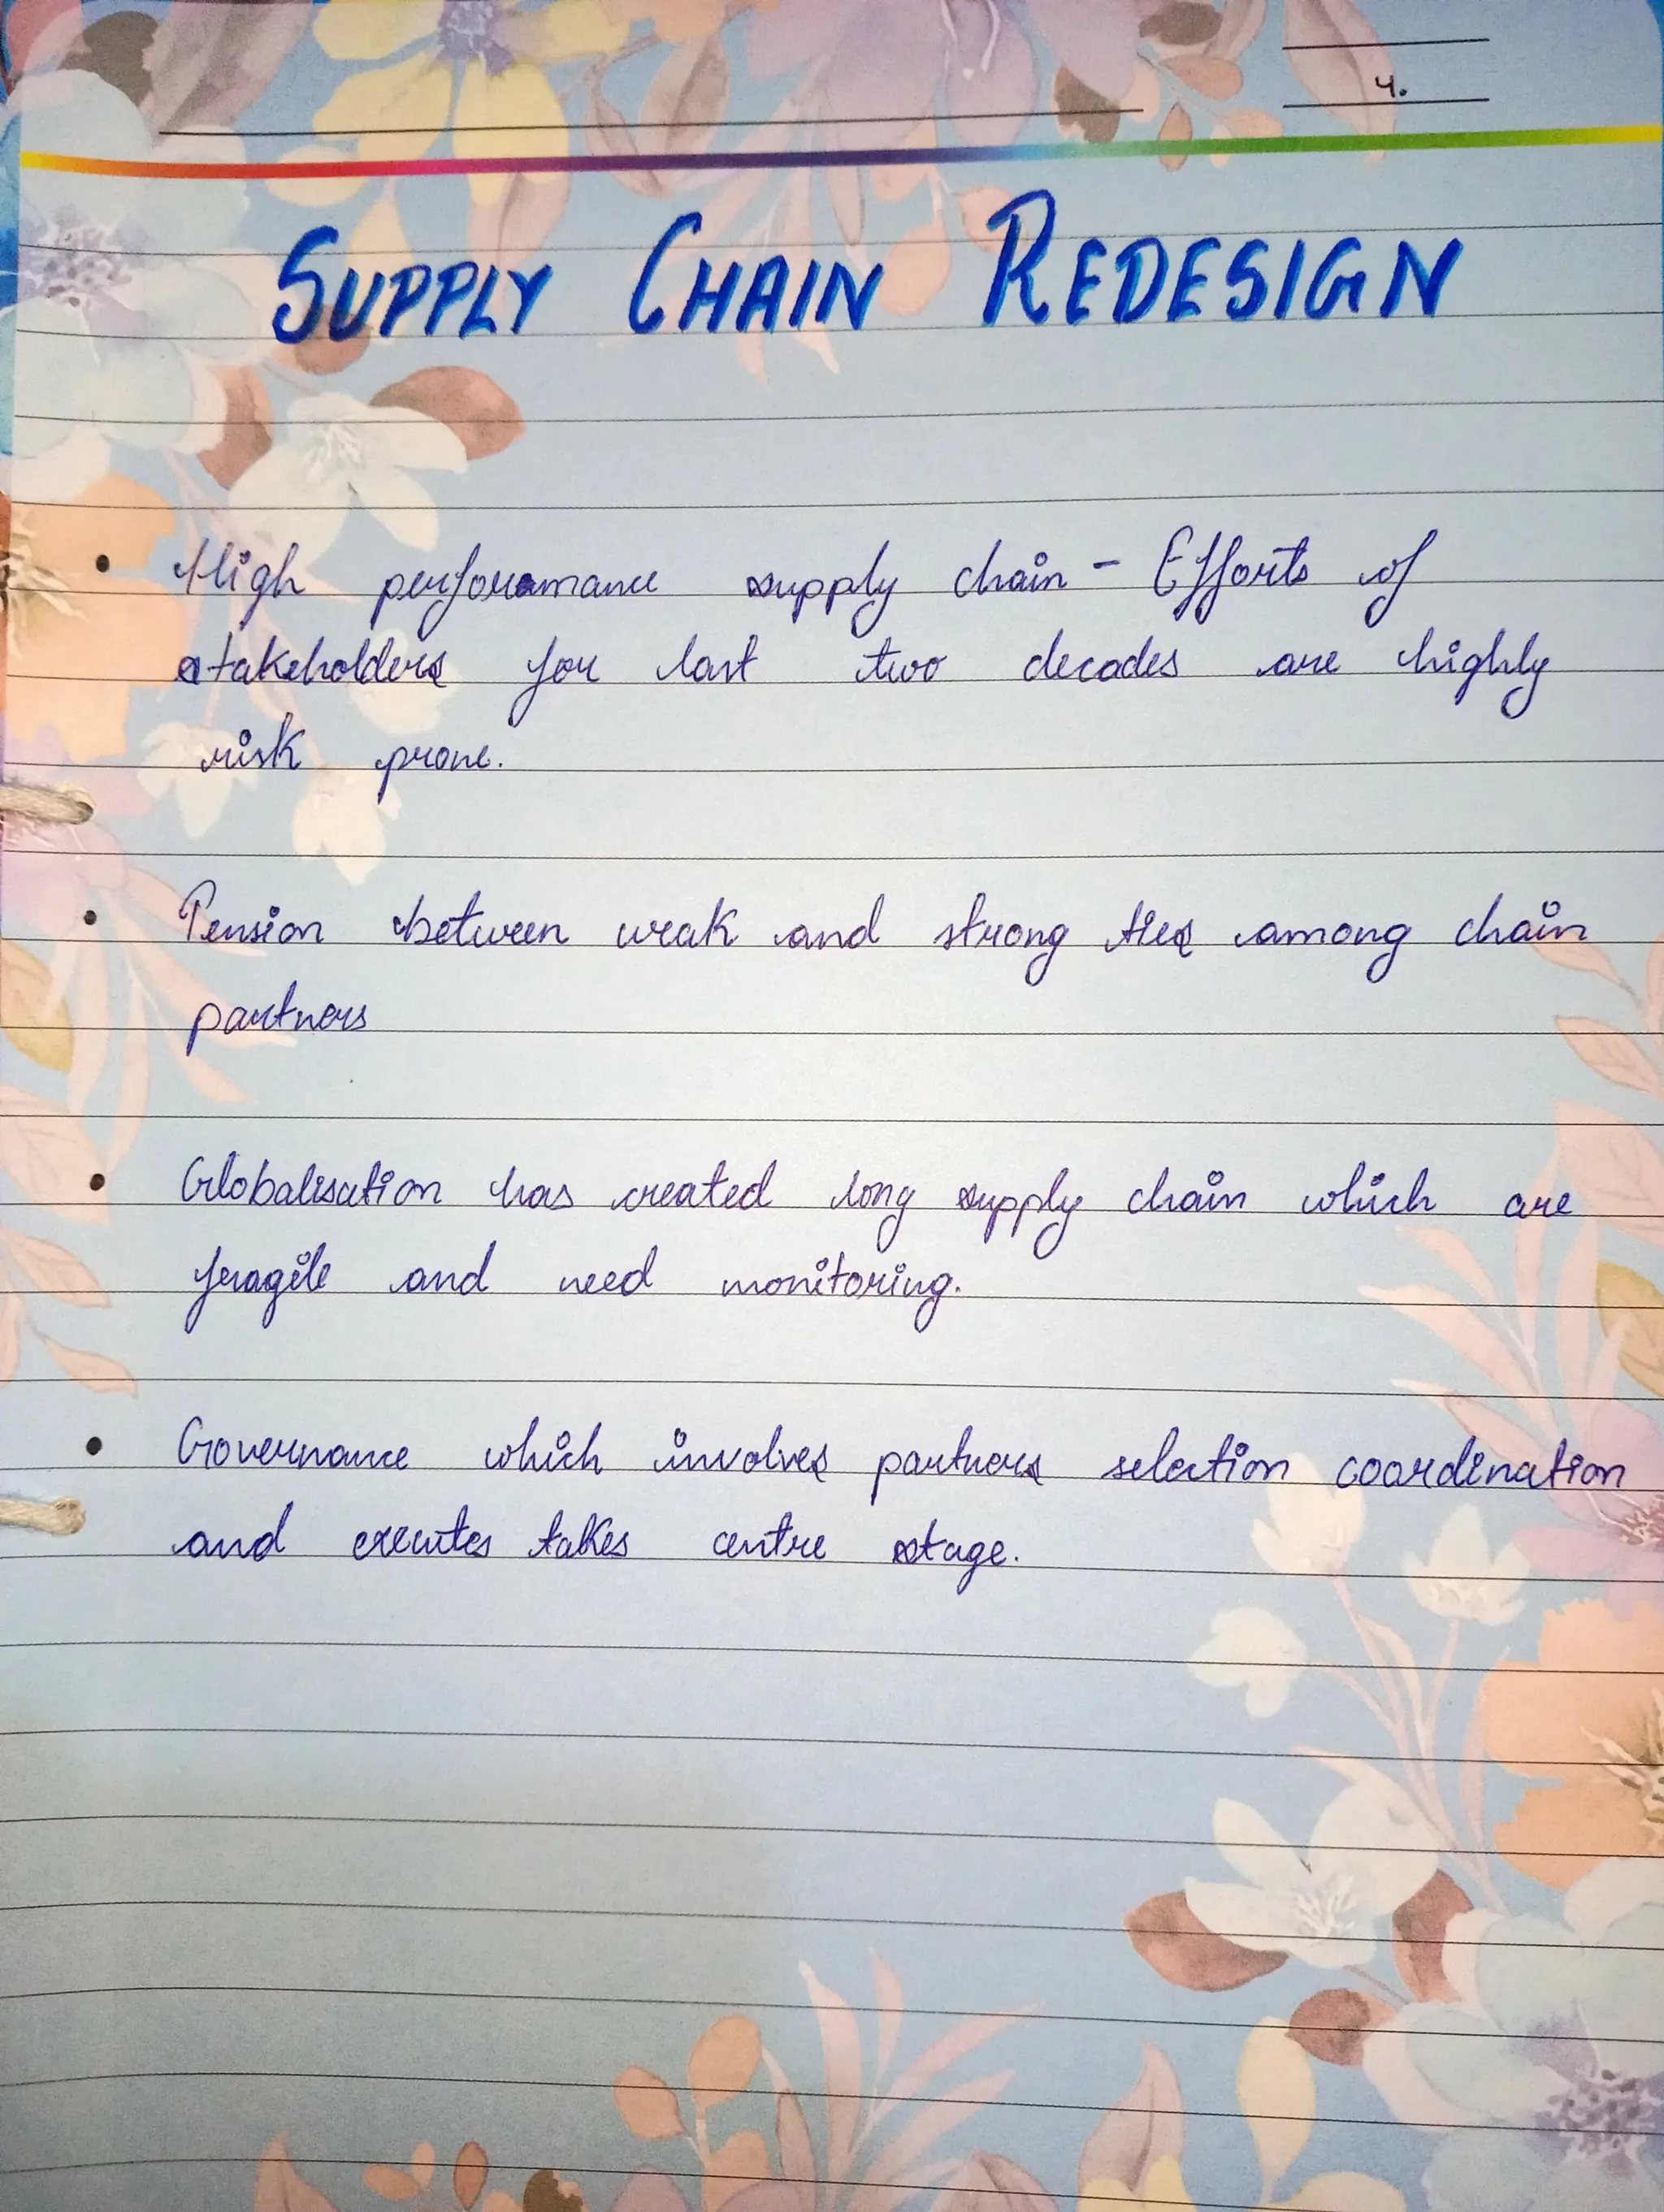 4.
SUPPLY CHAIN REDESIGN
• High performance supply chain - Efforts of
stakeholders for last two decades are highly
risk prone.
• Pension between weak and strong ties among chain
partners
• Globalisation has created long supply chain which are
fragile and need monitoring.
• Governance which involves partners selection coordination
and executes takes centre stage.